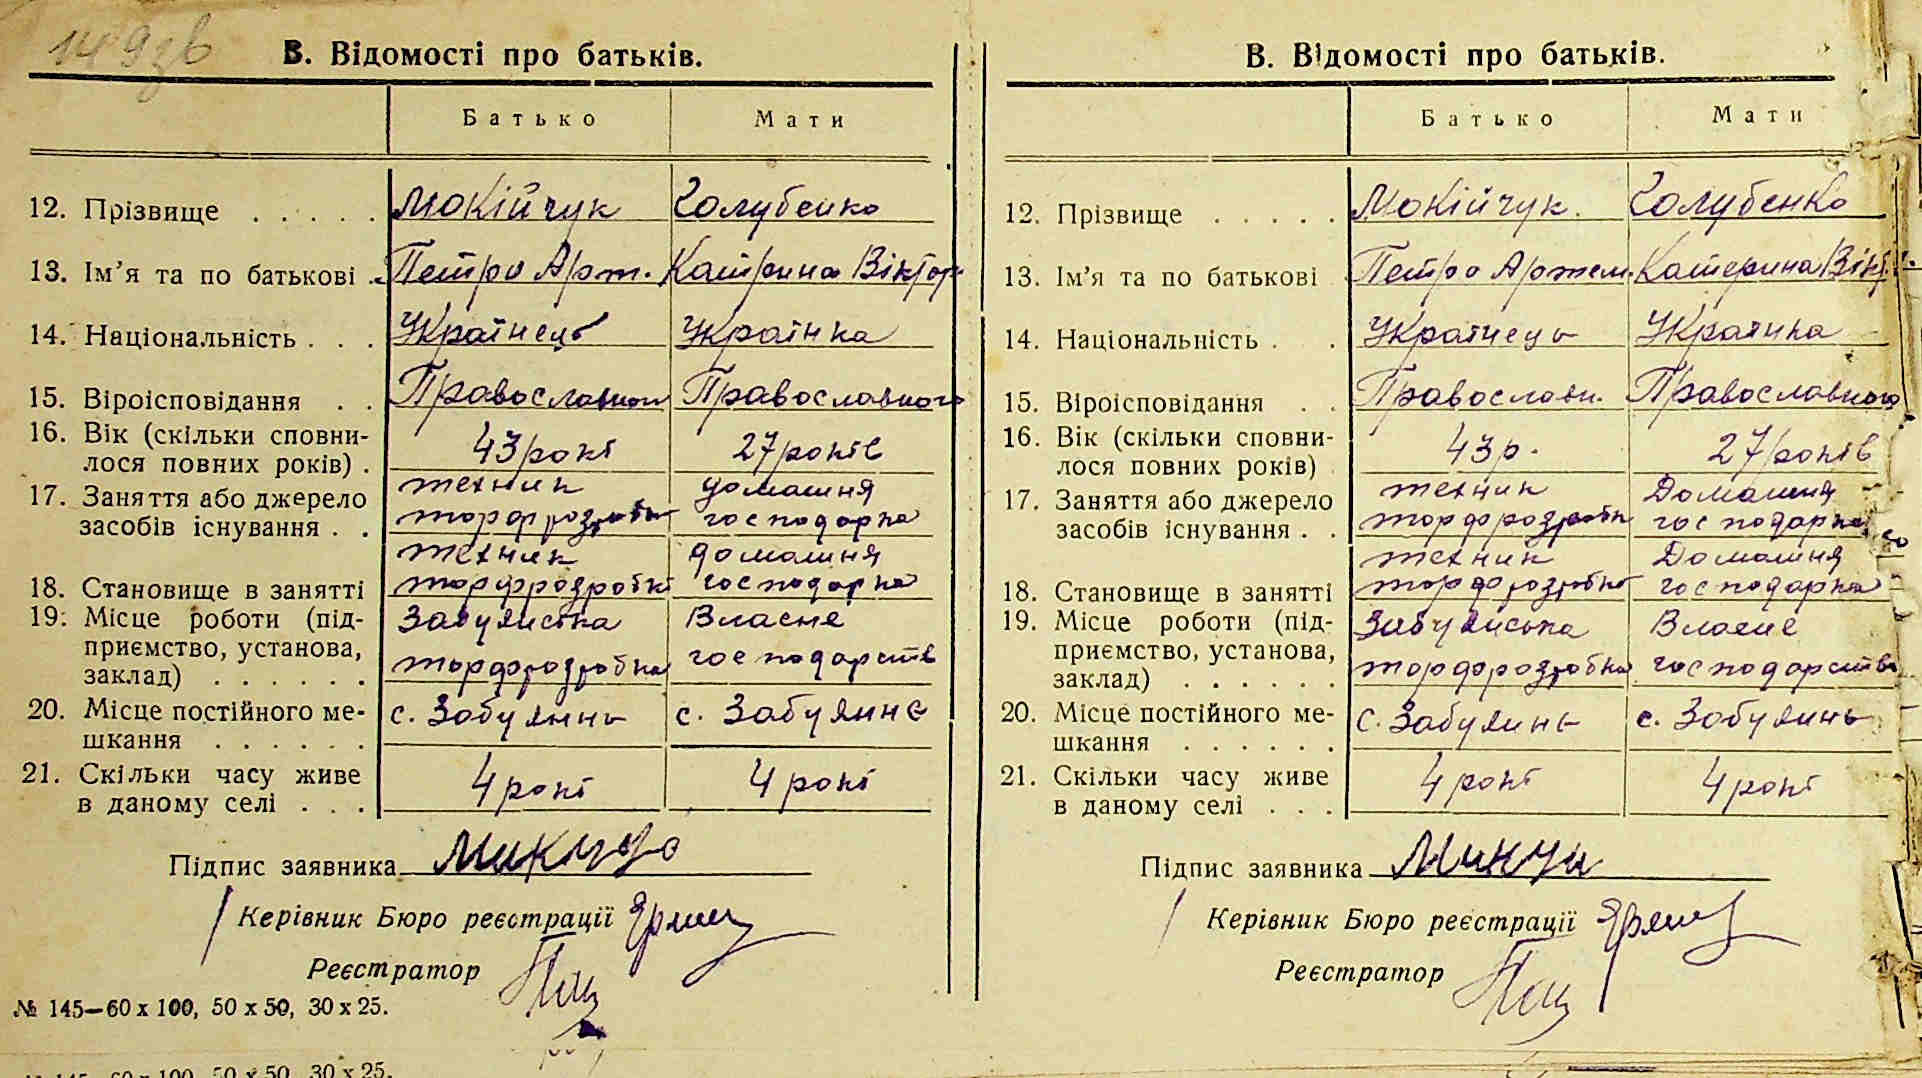 149зв
В. Відомості про батьків.
Батько Мати
12. Прізвище . . . . . Мокійчук Голубенко
13. Ім’я та по батькові . Петро Арт. Катрина Віктор.
14. Національність . . . Українець Українка
15. Віроісповідання . . Православного Православного
16. Вік (скільки сповни-
лося повних років) . 43 роки 27 років
17. Заняття або джерело технік домашня
засобів існування . . торфрозробки господарка
технік домашня
18. Становище в занятті торфрозробки господарка
19. Місце роботи (під- Забуянська Власне
приємство, установа,
заклад) . . . . . . торфрозробка господарств
20. Місце постійного ме- с. Забуяння с. Забуянє
шкання . . . . . .
21. Скільки часу живе 4 рокі 4 рокі
в даному селі . . .
Підпис заявника
Керівник Бюро реєстрації
Реєстратор
№ 145—60 x 100, 50 x 50, 30 x 25.
60 x 100, 50 x 50, 30 x 25.
В. Відомості про батьків.
Батько Мати
12. Прізвище . . . . . Мокійчук. Голубенко
13. Ім’я та по батькові Петро Артем. Катерина Вікт.
14. Національність . . Українець Українка
15. Віроісповідання . . Православн. Православного
16. Вік (скільки сповни-
лося повних років) 43 р. 27 років
17. Заняття або джерело технік Домашня
засобів існування . . торфрозробки господарка
технік Домашня
18. Становище в занятті торфрозробки господарка
19. Місце роботи (під- Забуянська Власне
приємство, установа,
заклад) . . . . . . торфрозробка господарств
20. Місце постійного ме- с. Забуянє с. Забуянь
шкання . . . . . .
21. Скільки часу живе 4 рокі 4 рокі
в даному селі . . .
Підпис заявника
Керівник Бюро реєстрації
Реєстратор